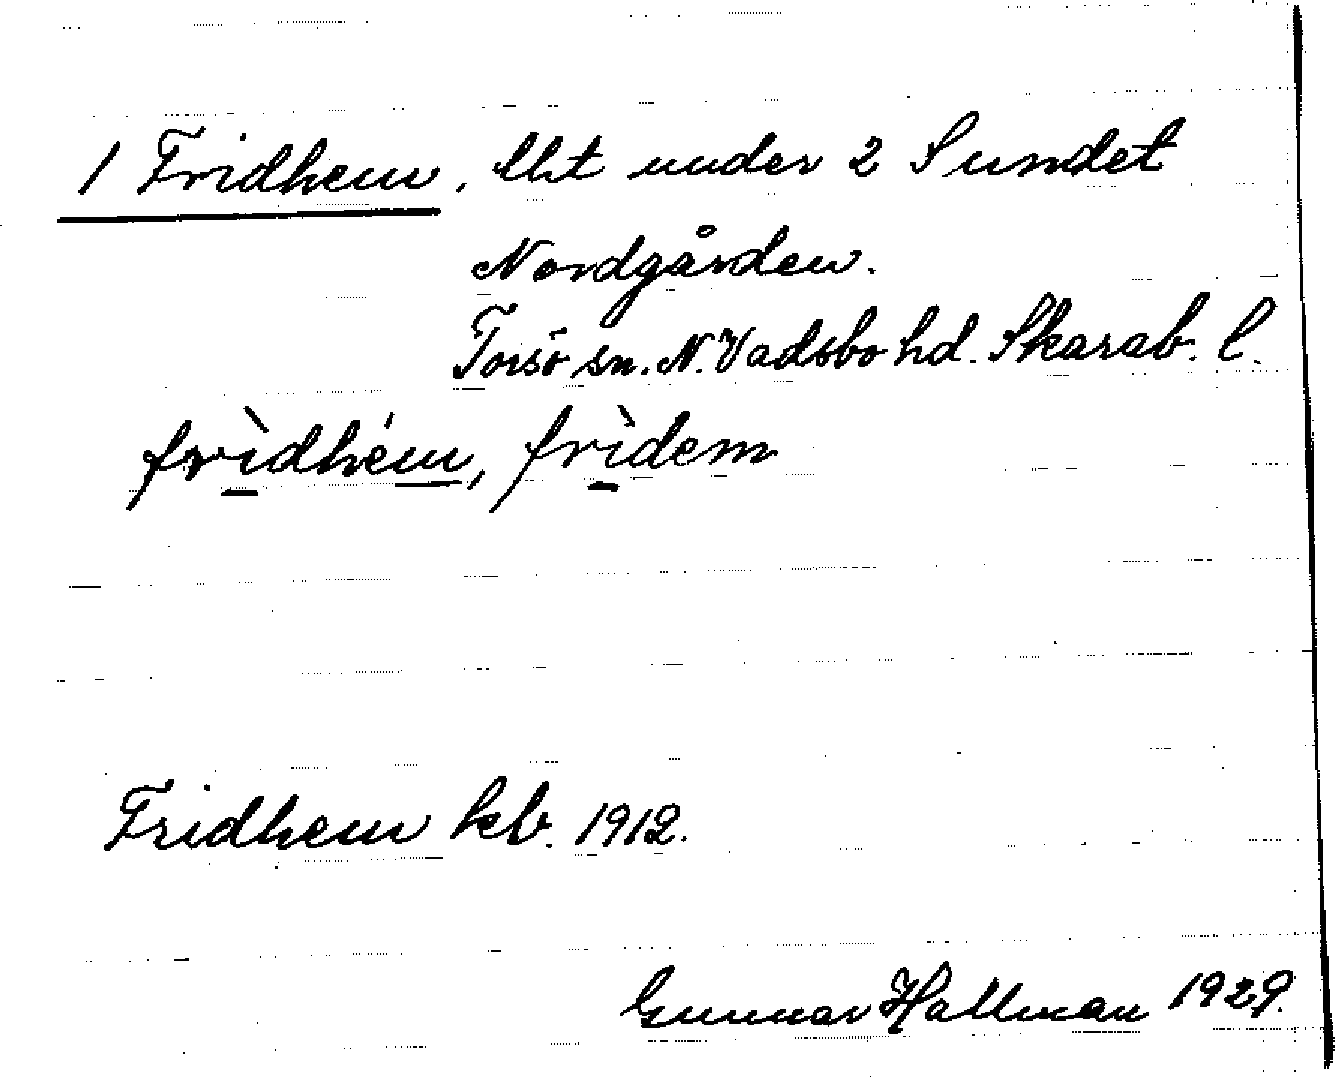 1 Fridhem, lht under 2 Sundet
Nordgården.
Torsö sn. N. Vadsbo hd. Skarab. l.
frìdhém, frìdem
Fridhem kb. 1912.
Gunnar Hallman 1929.